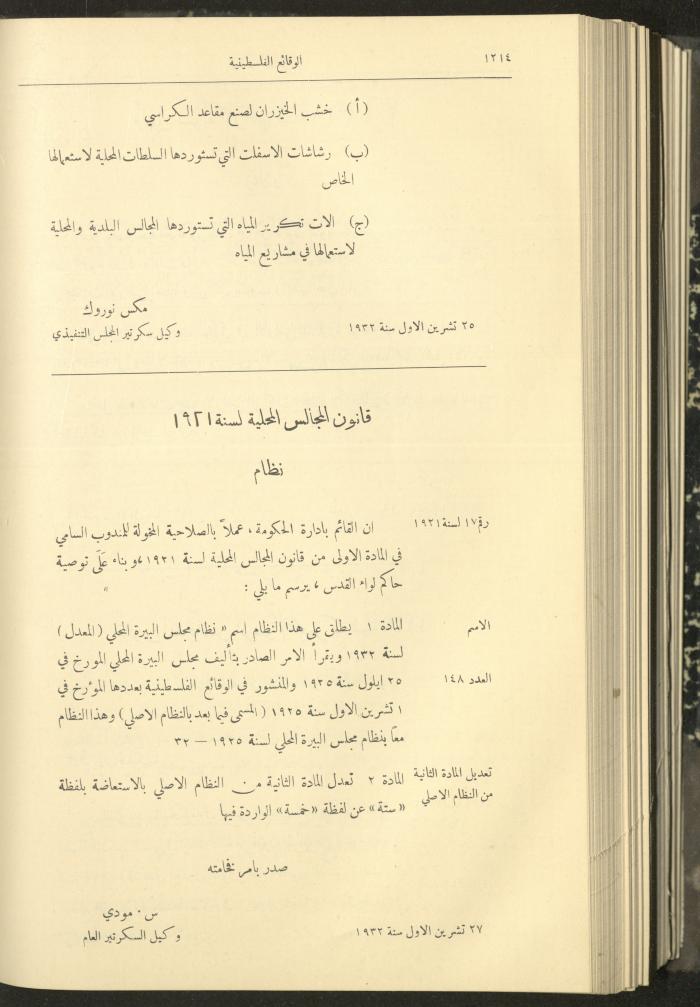 ١٢١٤
الوقائع الفلسطينية
(أ) خشب الخيزران لصنع مقاعد الكراسي
(ب) رشاشات الاسفلت التي تستوردها السلطات المحلية لاستعمالها
الخاص
(ج) الات تكرير المياه التي تستوردها المجالس البلدية والمحلية
لاستعمالها في مشاريع المياه
مكس نوروك
٢٥ تشرين الاول سنة ١٩٣٢
وكيل سكرتير المجلس التنفيذي
قانون المجالس المحلية لسنة ١٩٢١
نظام
رقم ١٧ لسنة ١٩٢١
ان القائم بادارة الحكومة ، عملاً بالصلاحية المخولة للمندوب السامي
في المادة الاولى من قانون المجالس المحلية لسنة ١٩٢١ ، وبناء عَلَى توصية
حاكم لواء القدس ، يرسم ما يلي :
الاسم
المادة ١ يطلق على هذا النظام اسم « نظام مجلس البيرة المحلي (المعدل)
لسنة ١٩٣٢ ويقرأ الامر الصادر بتأليف مجلس البيرة المحلي المورخ في
العدد ١٤٨
٢٥ ايلول سنة ١٩٢٥ والمنشور في الوقائع الفلسطينية بعددها المؤرخ في
١ تشرين الاول سنة ١٩٢٥ (المسمى فيما بعد بالنظام الاصلي) وهذا النظام
معاً بنظام مجلس البيرة المحلي لسنة ١٩٢٥ — ٣٢
تعديل المادة الثانية
من النظام الاصلي
المادة ٢ تعدل المادة الثانية من النظام الاصلي بالاستعاضة بلفظة
«ستة» عن لفظة «خمسة» الواردة فيها
صدر بامر فخامته
س . مودي
٢٧ تشرين الاول سنة ١٩٣٢
وكيل السكرتير العام